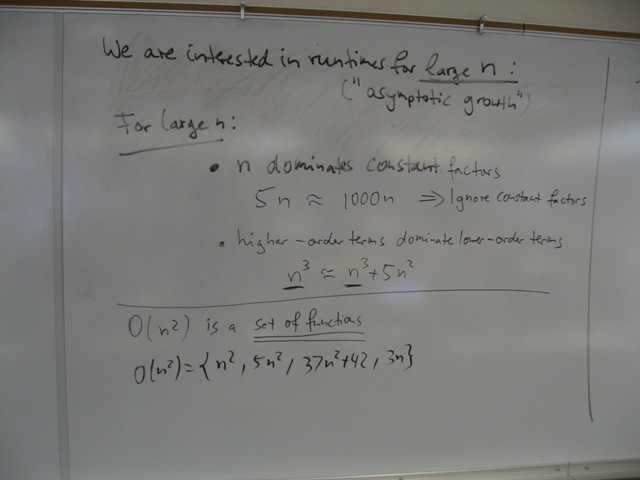 We are interested in runtimes for large n:
("asymptotic growth")
For large n:
• n dominates constant factors
5n ≈ 1000n ⇒ Ignore constant factors
• higher-order terms dominate lower-order terms
n³ ≈ n³+5n²
O(n²) is a set of functions
O(n²)={n², 5n², 37n²+42, 3n}